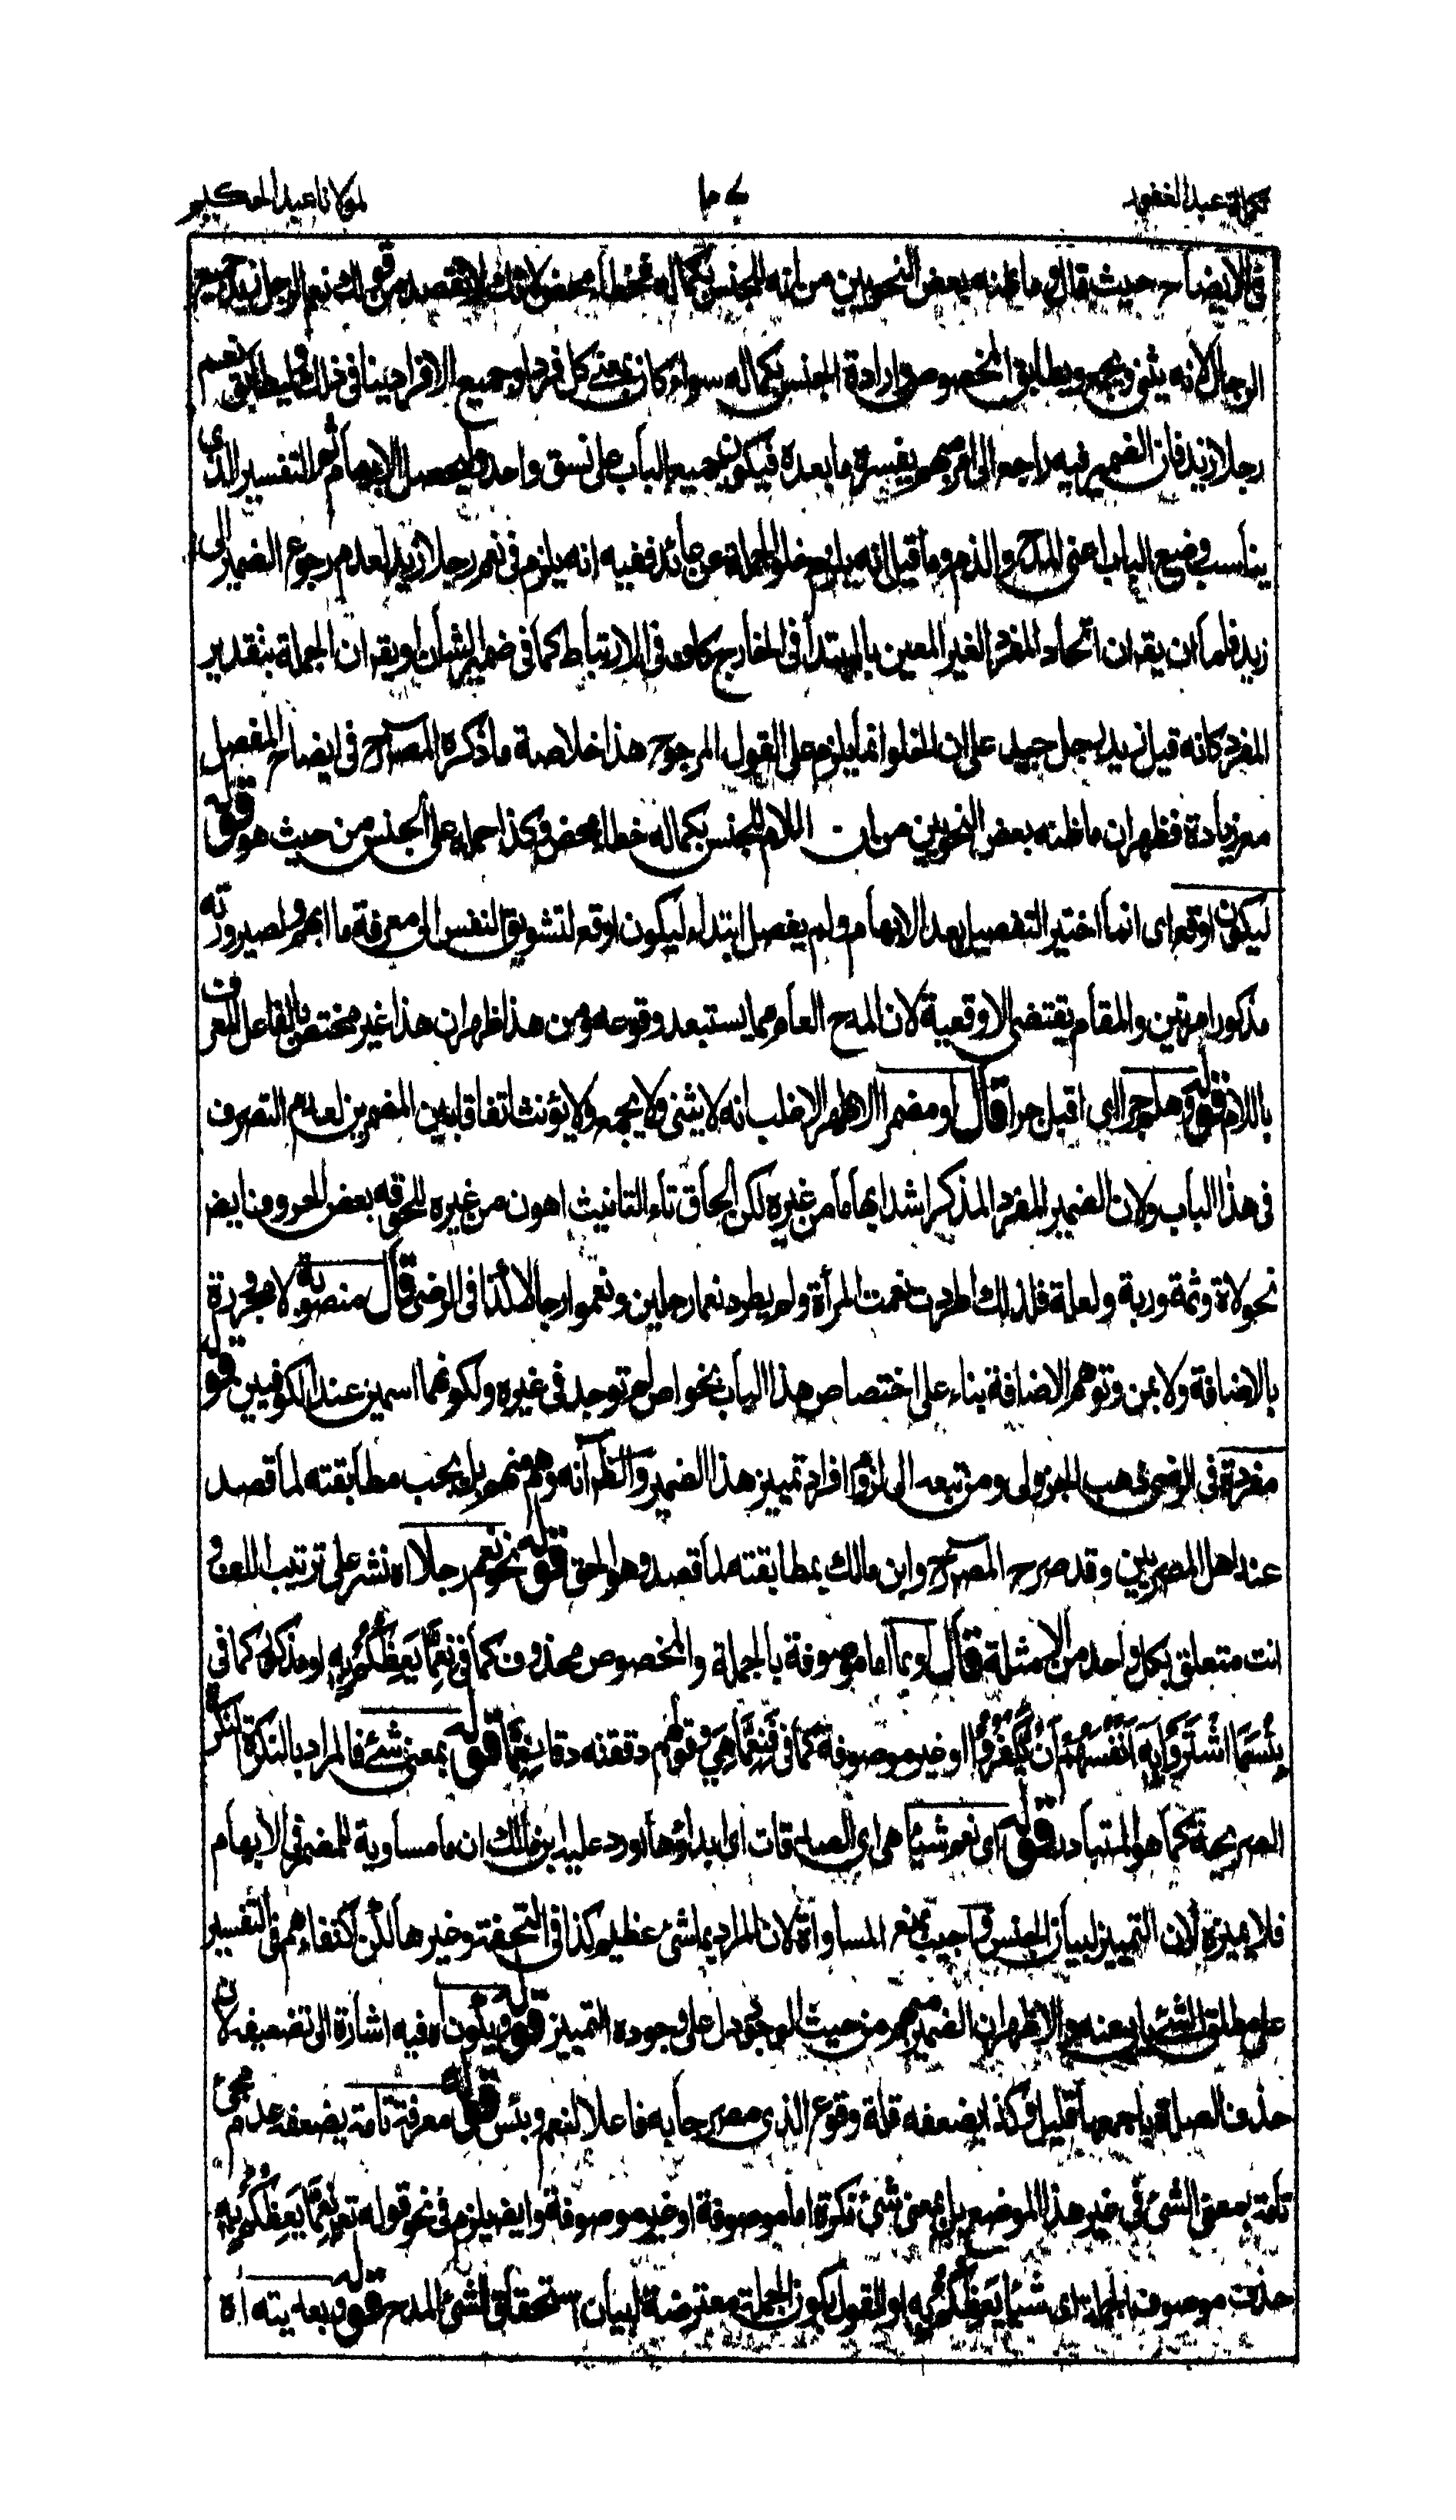 تكملة عبد الغفور
مولانا عبد الحكيم
فى الايضاح حيث قال وما ظنه بعض النحويين من انه للجنس بكماله فخطأ محض لانك لا تقصد من قولك نعم الرجل زيد جميع
الرجال لانه يثنى ويجمع ويطابق المخصوص وارادة الجنس بكماله سواء كان بمعنى كل فرد او جميع الافراد ينافى ذلك وليطابق نعم
رجلا زيد فان الضمير فيه راجع الى امر مبهم يفسره ما بعده فيكون جميع الباب على نسق واحد وليحصل الابهام ثم التفسير الذى
يناسب وضع الباب اعنى المدح والذم وما قيل انه يلزم خلو الجملة عن عائد ففيه انه يلزم فى نعم رجلا زيد لعدم رجوع الضمير الى
زيد فاما ان يقه ان اتحاد المفرد الغير المعين بالمبتدأ فى الخارج كاف فى الارتباط كما فى ضمير الشان او يقه ان الجملة بتقدير
المفرد كانه قيل زيد رجل جيد على ان الخلو انما يلزم على القول المرجوح هذا خلاصة ما ذكره المصرح فى ايضاح المفصل
مع زيادة فظهر ان ما ظنه بعض النحويين من ان اللام للجنس بكماله خطاء محض وكذا حمله على الجنس من حيث هو قوله
ليكون اوقع اى انما اختير التفصيل بعد الابهام ولم يفصل ابتداء ليكون اوقع لتشويق النفس الى معرفة ما ابهم ولصيرورته
مذكورا مرتين والمقام يقتضى الاوقعية لان المدح العام مما يستبعد وقوعه ومن هذا ظهر ان هذا غير مختص بالفاعل المعرف
باللام قوله وهلم جرا اى اقبل جرا قال او مضمرا الاظهر الاغلب انه لا يثنى ولا يجمع ولا يؤنث اتفاقا بين المضمرين لعدم التصرف
فى هذا الباب ولان الضمير المفرد المذكر اشد ابهاما من غيره لكن الحاق تاء التانيث اهون من غيره للحوقه بعض الحروف ايضا
نحو لاة وثمة وربة ولعلة فلذلك اطردت نعمت المرأة ولم يطرد نعما رجلين ونعموا رجالا كذا فى الرضى قال منصوبة لا مجرورة
بالاضافة ولا بمن وتوهم الاضافة بناء على اختصاص هذا الباب بخواص لم توجد فى غيره ولكونهما اسمين عند الكوفيين قوله
مفردة فى الرضى ذهب الجزولى ومن تبعه الى لزوم افراد تمييز هذا الضمير والظ انه وهم منهم بل يجب مطابقته لما قصد
عند اهل المصرين وقد صرح المصرح وابن مالك بمطابقته لما قصد وهو الحق قوله نحو نعم رجلا اه نشر على ترتيب اللف و
انت متعلق بكل واحد من الامثلة قال او بما اما موصوفة بالجملة والمخصوص محذوف كما فى نِعِمَّا يَعِظُكُمْ بِهِ او مذكور كما فى
بِئْسَمَا اشْتَرَوْا بِهِ اَنْفُسَهُمْ اَنْ يَّكْفُرُوْا او غير موصوفة كما فى فَنِعِمَّا هِيَ وقولهم دققته دقا نعما قوله بمعنى شئ فالمراد بالنكرة النكرة
الصريحة كما هو المتبادر قوله اى نعم شيئا هى اى الصدقات اى ابداؤها اورد عليه ابن مالك ان ما مساوية للمضمر فى الابهام
فلا يميزه لان التمييز لبيان الجنس واجيب بمنع المساواة لان المراد بما شئ عظيم كذا فى التحفة وغيرها لكن اكتفاءهم فى التفسير
على مطلق الشئ يابى عنه والاظهر ان الضمير مبهم من حيث الوجود دل على وجوده التمييز قوله ويكون اه فيه اشارة الى تضعيفه لان
حذف الصلة باجمعها قليل وكذا يضعفه قلة وقوع الذى مصرحا به فاعلا لنعم وبئس قوله معرفة تامة يضعفه عدم مجئ
تامة بمعنى الشئ فى غير هذا الموضع بل بمعنى شئ نكرة اما موصوفة او غير موصوفة وايضا يلزم فى نحو قوله تع نِعِمَّا يَعِظُكُمْ بِهِ
حذف موصوف الجملة اى شيئا يَعِظُكُمْ بِهِ او القول بكون الجملة معترضة لبيان استحقاق الشئ المدح قوله وبعد يته اه